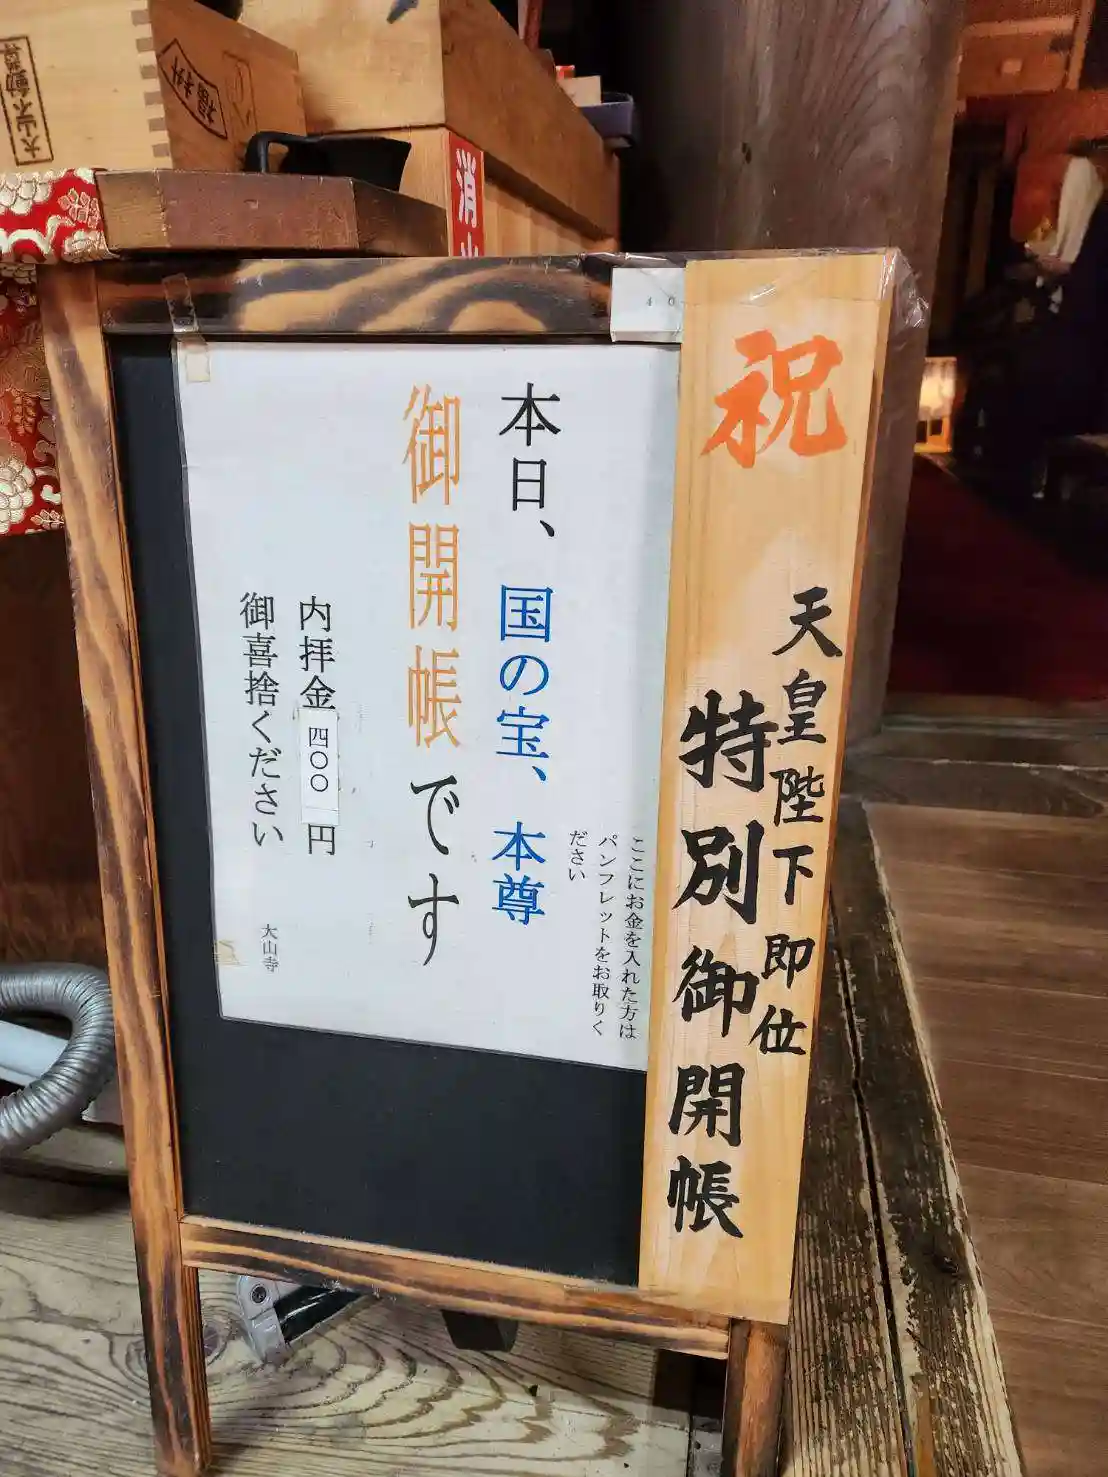 祝
天皇陛下即位
特別御開帳
ここにお金を入れた方は
パンフレットをお取りく
ださい
本日、国の宝、本尊
御開帳です
内拝金四〇〇円
御喜捨ください
大山寺
40
消火
大山不動